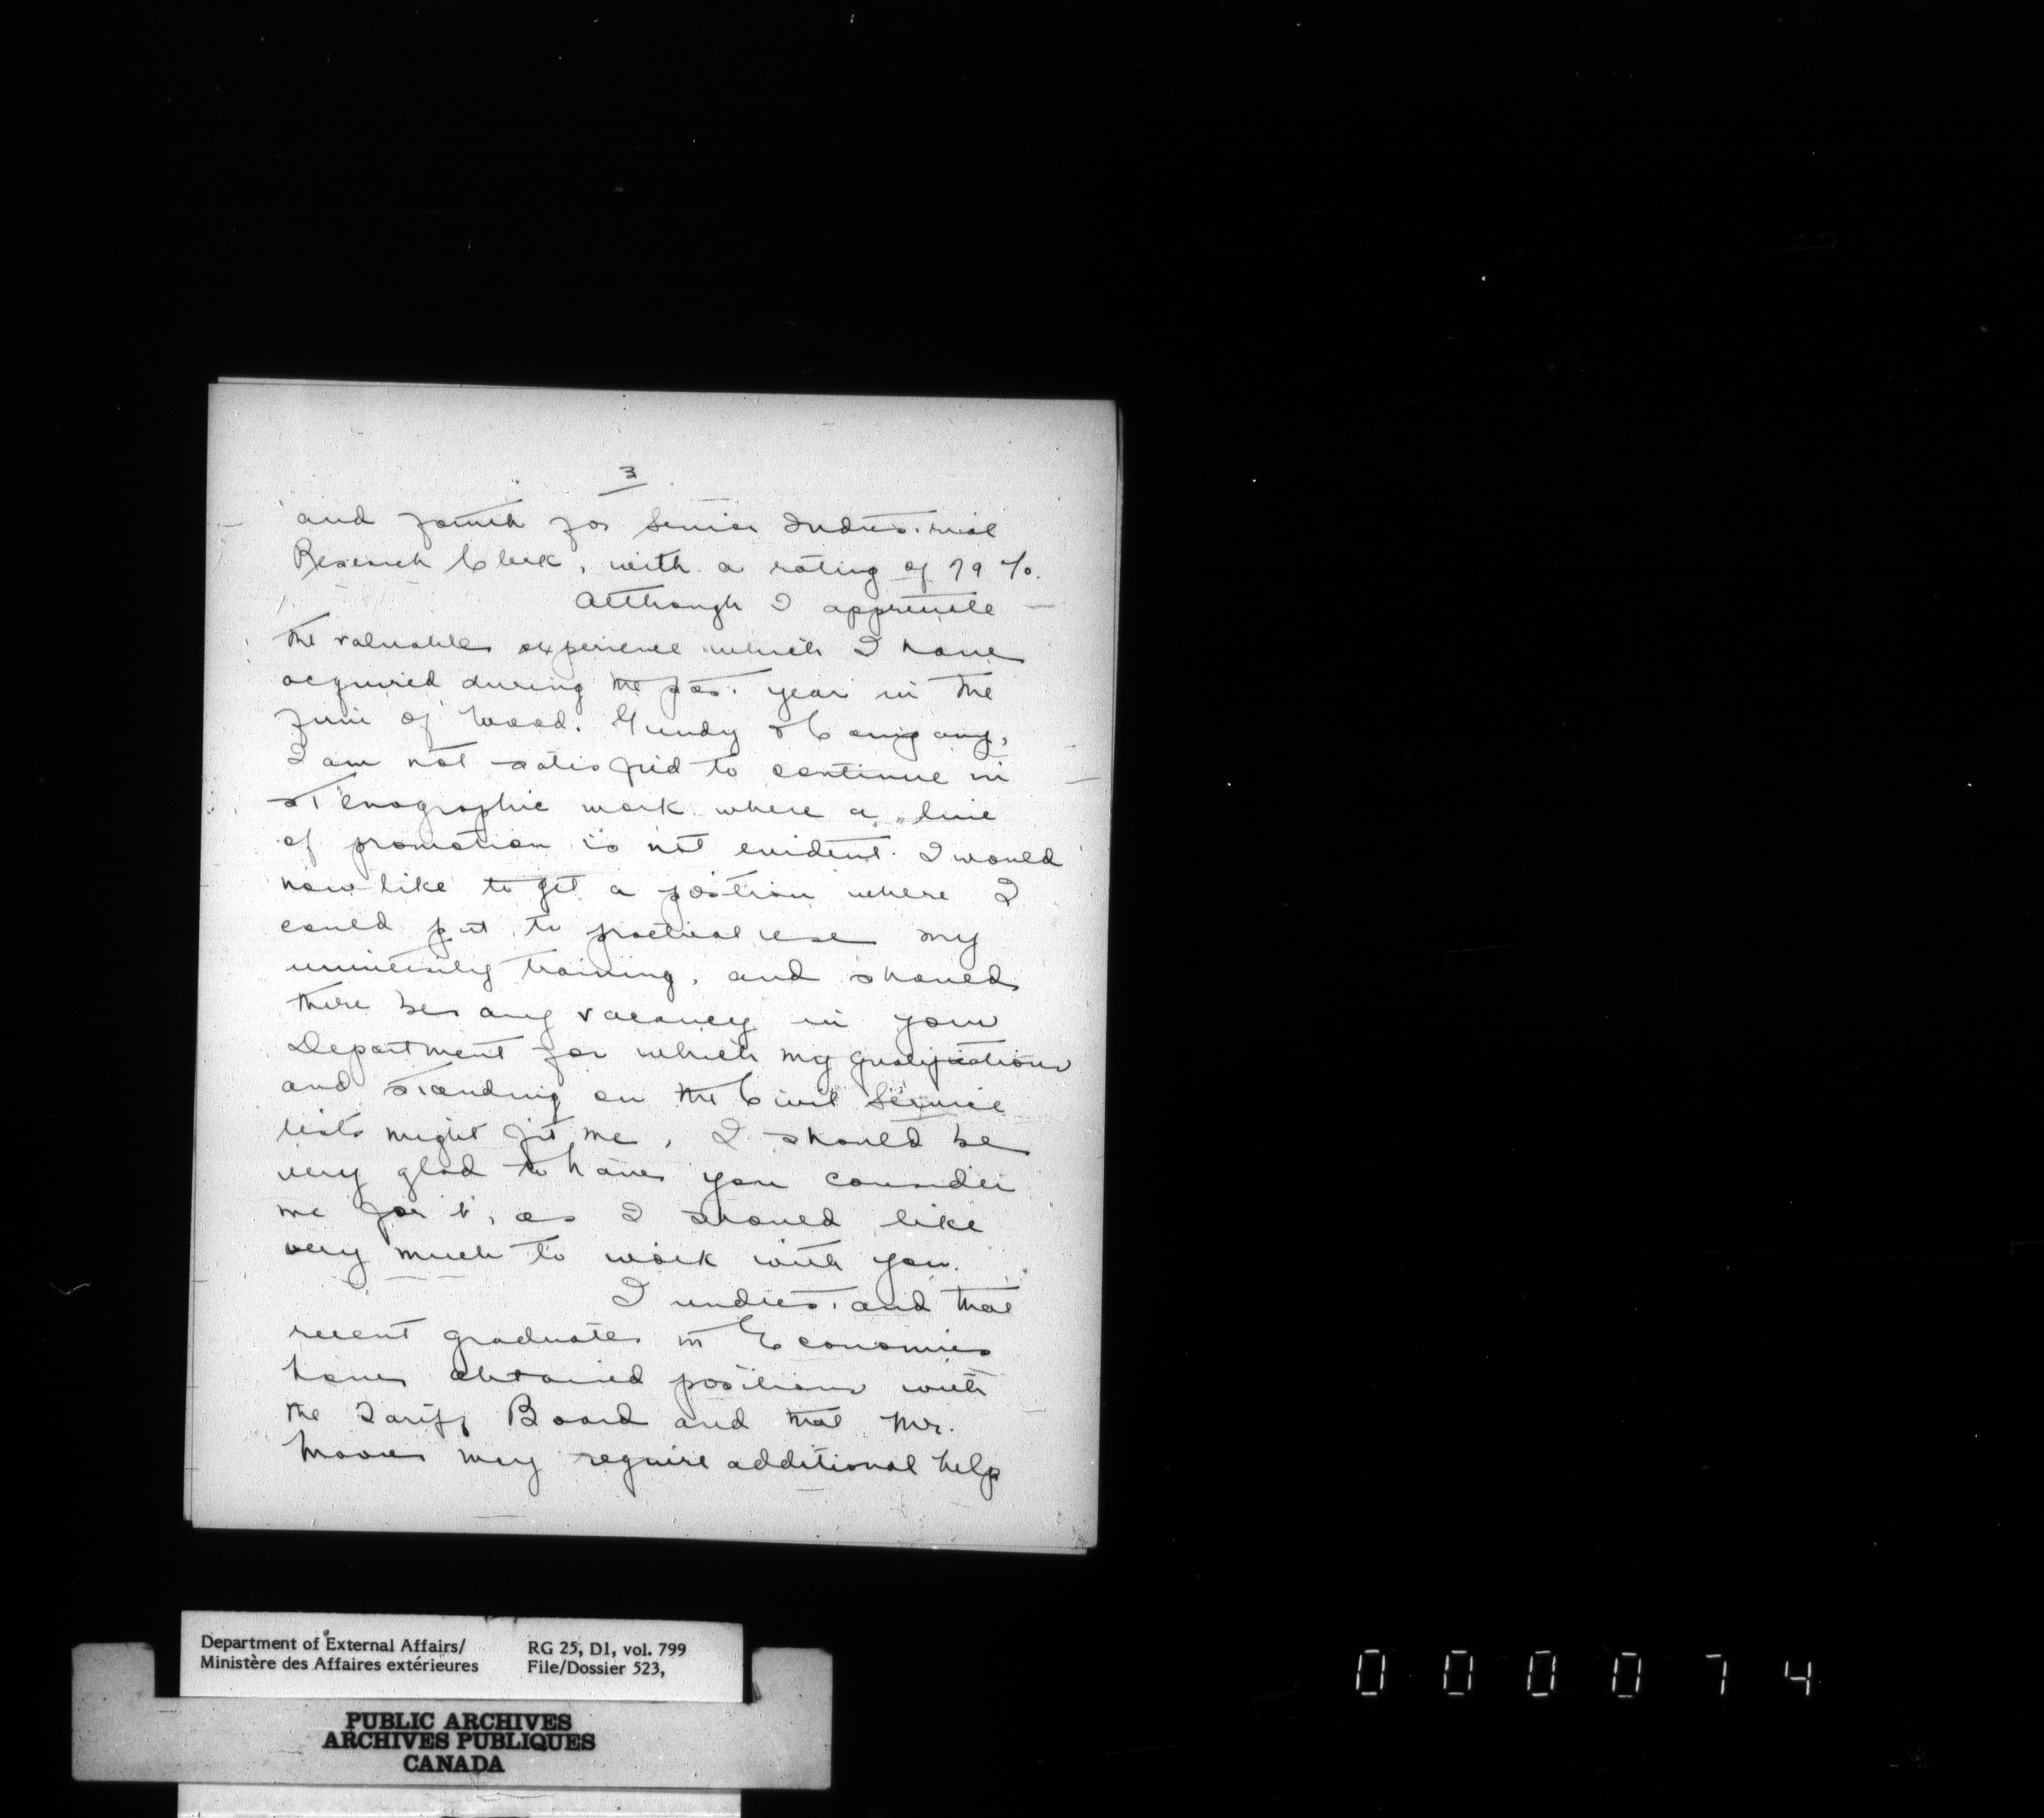 3
and fourth for Senior Industrial
Research Clerk, with a rating of 79 %.
Although I appreciate
the valuable experience which I have
acquired during the past year in the
firm of Wood, Gundy & Company,
I am not satisfied to continue in
stenographic work where a line
of promotion is not evident. I would
now like to get a position where I
could put to practical use my
university training, and should
there be any vacancy in your
Department for which my qualifications
and standing on the Civil Service
lists might fit me, I should be
very glad to have you consider
me for it, as I should like
very much to work with you.
I understand that
recent graduates in Economics
have obtained positions with
the Tariff Board and that Mr.
Moore may require additional help
Department of External Affairs/
Ministère des Affaires extérieures
RG 25, D1, vol. 799
File/Dossier 523,
PUBLIC ARCHIVES
ARCHIVES PUBLIQUES
CANADA
000074